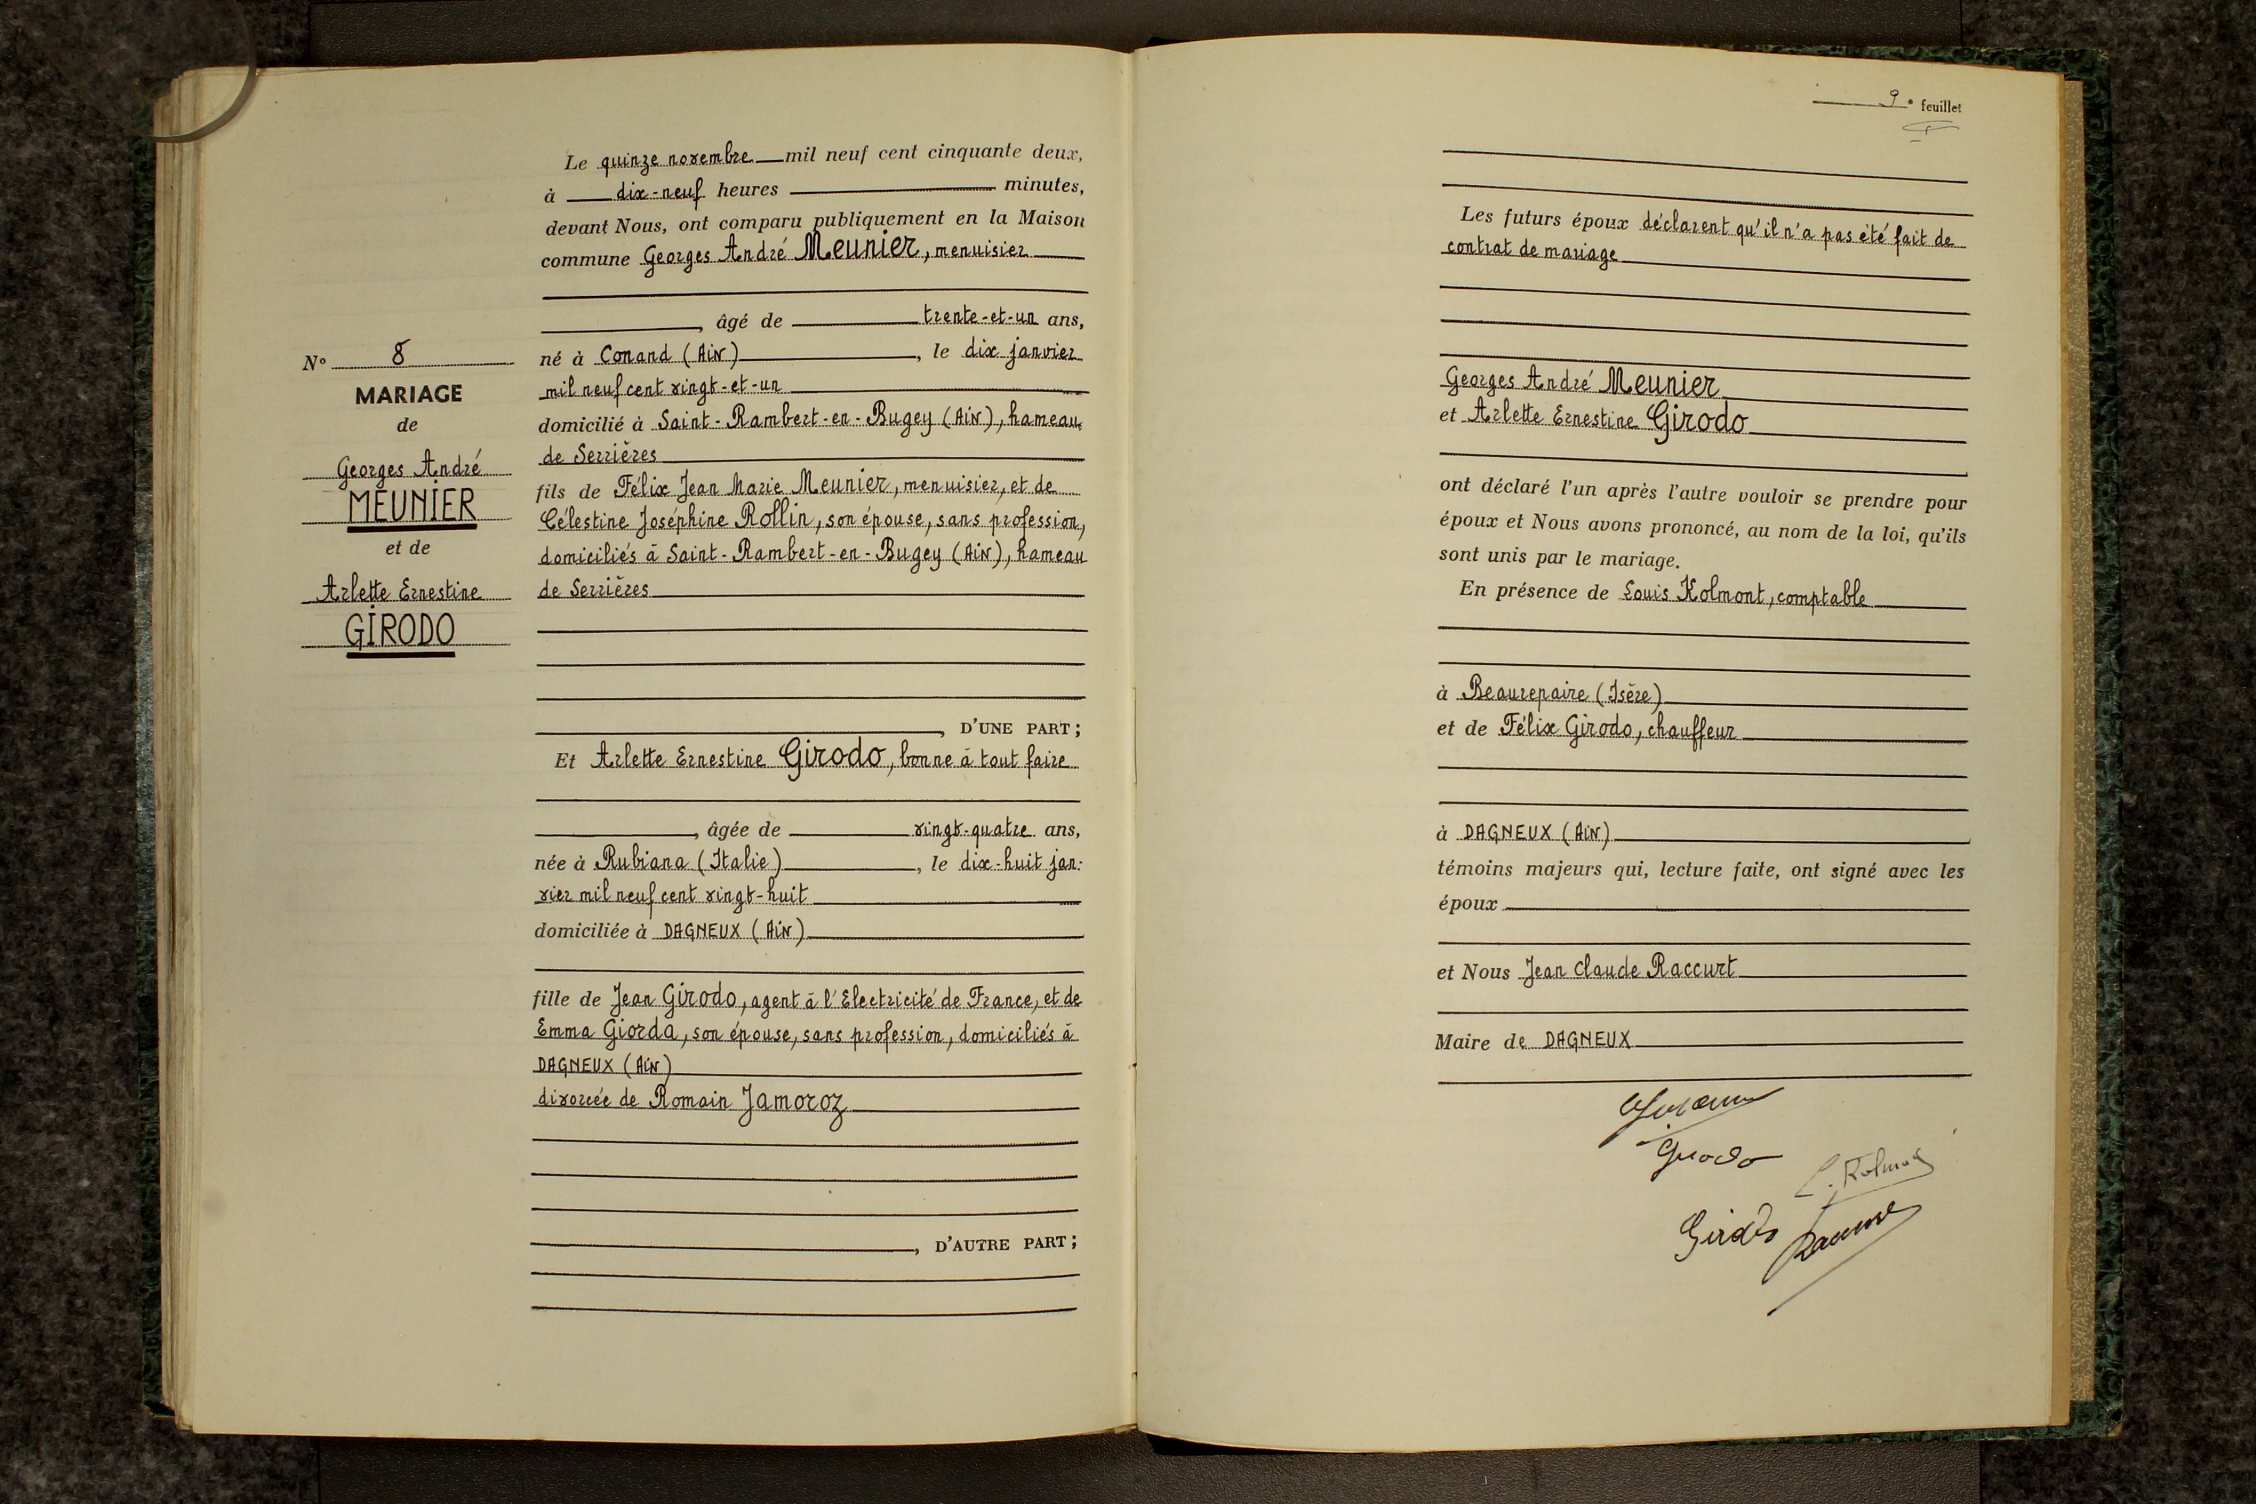 Le quinze novembre mil neuf cent cinquante deux,
à dix-neuf heures minutes,
devant Nous, ont comparu publiquement en la Maison
commune Georges André Meunier, menuisier
, âgé de trente-et-un ans,
né à Conand (Ain), le dix janvier
mil neuf cent vingt-et-un
domicilié à Saint-Rambert-en-Bugey (Ain), hameau
de Serrières
fils de Félix Jean Marie Meunier, menuisier, et de
Célestine Joséphine Rollin, son épouse, sans profession,
domiciliés à Saint-Rambert-en-Bugey (Ain), hameau
de Serrières
, D'UNE PART;
Et Arlette Ernestine Girodo, bonne à tout faire
, âgée de vingt-quatre ans,
née à Rubiana (Italie), le dix-huit jan-
vier mil neuf cent vingt-huit
domiciliée à DAGNEUX (Ain)
fille de Jean Girodo, agent à l'Electricité de France, et de
Emma Giorda, son épouse, sans profession, domiciliés à
DAGNEUX (Ain)
divorcée de Romain Jamoroz
, D'AUTRE PART;
N° 8
MARIAGE
de
Georges André
MEUNIER
et de
Arlette Ernestine
GIRODO
9e feuillet
Les futurs époux déclarent qu'il n'a pas été fait de
contrat de mariage
Georges André Meunier
et Arlette Ernestine Girodo
ont déclaré l'un après l'autre vouloir se prendre pour
époux et Nous avons prononcé, au nom de la loi, qu'ils
sont unis par le mariage.
En présence de Louis Kolmont, comptable
à Beaurepaire (Isère)
et de Félix Girodo, chauffeur
à DAGNEUX (Ain)
témoins majeurs qui, lecture faite, ont signé avec les
époux
et Nous Jean Claude Raccurt
Maire de DAGNEUX
Girodo
Girodo